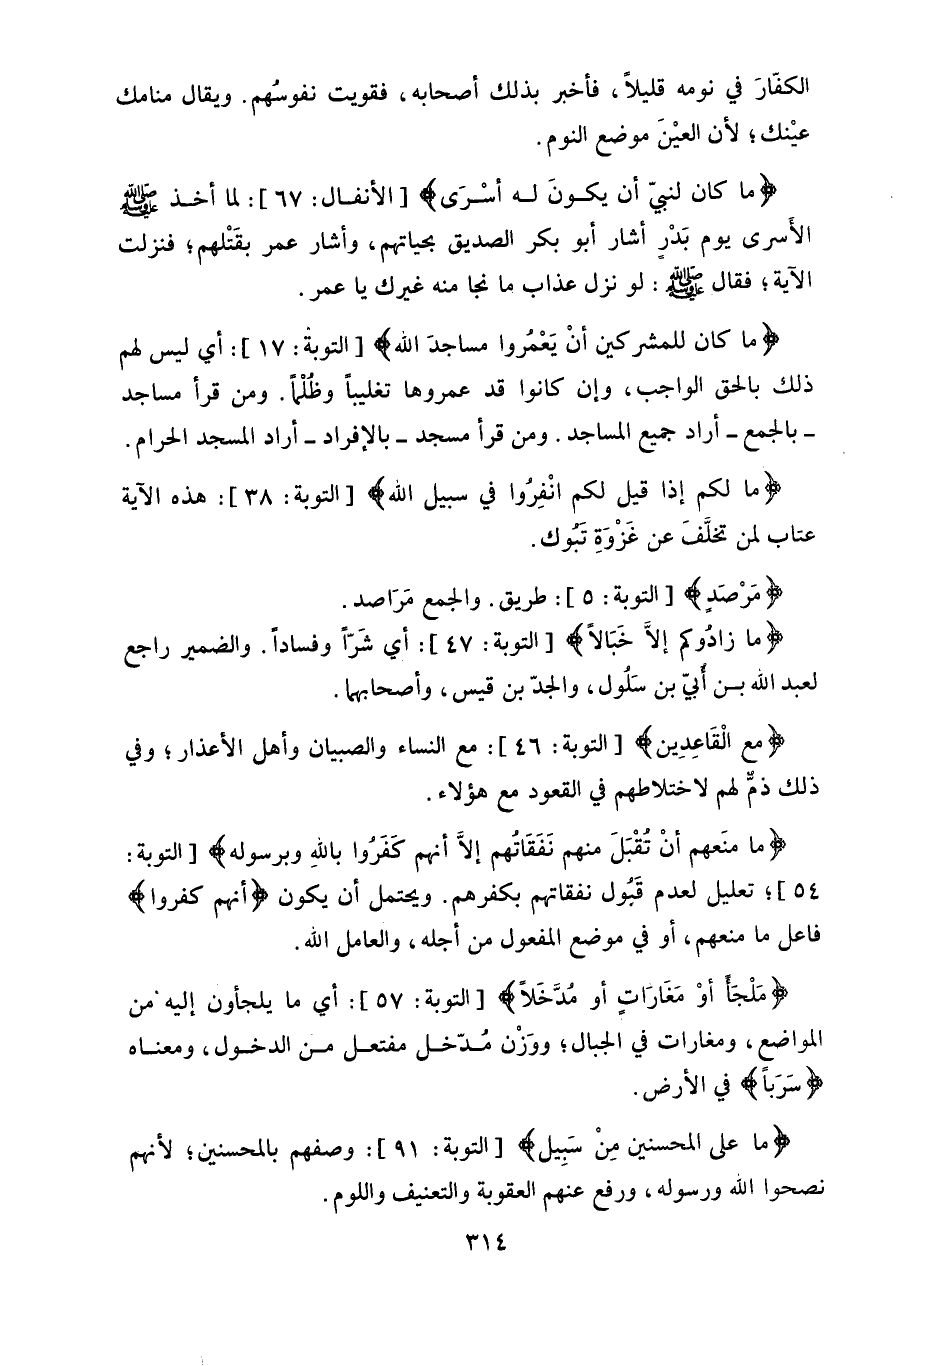 الكفّارَ في نومه قليلاً، فأخبر بذلك أصحابه، فقويت نفوسُهم. ويقال منامك
عيْنك؛ لأن العيْنَ موضع النوم.
﴿ما كان لنبيّ أن يكـونَ لـه أسْرَى﴾ [الأنفـال: ٦٧]: لما أخـذ ﷺ
الأَسرى يوم بَدْرٍ أشار أبو بكر الصديق بحياتهم، وأشار عمر بقَتْلهم؛ فنزلت
الآية؛ فقال ﷺ: لو نزل عذاب ما نجا منه غيرك يا عمر.
﴿ما كان للمشركين أنْ يَعْمُروا مساجدَ الله﴾ [التوبة: ١٧]: أي ليس لهم
ذلك بالحق الواجب، وإن كانوا قد عمروها تغليباً وظُلْماً. ومن قرأ مساجد
ـ بالجمع ـ أراد جميع المساجد. ومن قرأ مسجد ـ بالإفراد ـ أراد المسجد الحرام.
﴿ما لكم إذا قيل لكم انْفِرُوا في سبيل الله﴾ [التوبة: ٣٨]: هذه الآية
عتاب لمن تخلَّفَ عن غَزْوَةِ تَبُوك.
﴿مَرْصَدٍ﴾ [التوبة: ٥]: طريق. والجمع مَرَاصد.
﴿ما زادُوكم إلاَّ خَبَالاً﴾ [التوبة: ٤٧]: أي شَرّاً وفساداً. والضمير راجع
لعبد الله بـن أُبيّ بن سَلُول، والجدّ بن قيس، وأصحابهما.
﴿مع الْقَاعِدِين﴾ [التوبة: ٤٦]: مع النساء والصبيان وأهل الأعذار؛ وفي
ذلك ذمٌّ لهم لاختلاطهم في القعود مع هؤلاء.
﴿ما منَعهم أنْ تُقْبَلَ منهم نَفَقَاتُهم إلاَّ أنهم كَفَرُوا باللهِ وبرسوله﴾ [التوبة:
٥٤]؛ تعليل لعدم قَبُول نفقاتهم بكفرهم. ويحتمل أن يكون ﴿أنهم كفروا﴾
فاعل ما منعهم، أو في موضع المفعول من أجله، والعامل الله.
﴿مَلْجَأً أوْ مَغَارَاتٍ أو مُدَّخَلاً﴾ [التوبة: ٥٧]: أي ما يلجأون إليه من
المواضع، ومغارات في الجبال؛ ووَزْن مُـدّخـل مفتعـل مـن الدخـول، ومعنـاه
﴿سَرَباً﴾ في الأرض.
﴿ما على المحسنين مِنْ سَبِيل﴾ [التوبة: ٩١]: وصفهم بالمحسنين؛ لأنهم
نصحوا الله ورسوله، ورفع عنهم العقوبة والتعنيف واللوم.
٣١٤